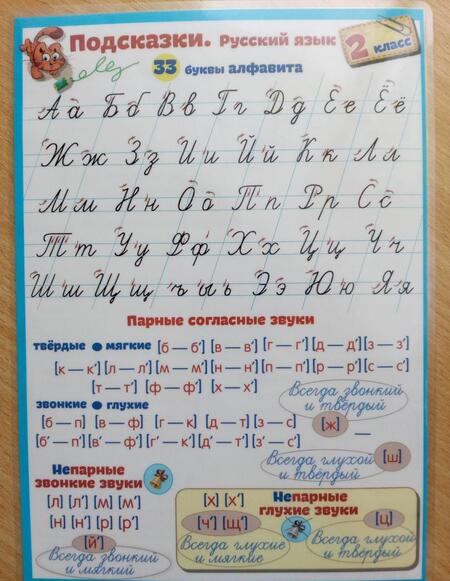 Подсказки. Русский язык 2 класс
33 буквы алфавита
Аа Бб Вв Гг Дд Ее Ёё
Жж Зз Ии Йй Кк Лл
Мм Нн Оо Пп Рр Сс
Тт Уу Фф Хх Цц Чч
Шш Щщ ъыь Ээ Юю Яя
Парные согласные звуки
твёрдые ● мягкие [б — б'] [в — в'] [г — г'] [д — д'] [з — з']
[к — к'] [л — л'] [м — м'] [н — н'] [п — п'] [р — р'] [с — с']
[т — т'] [ф — ф'] [х — х']
звонкие ● глухие
[б — п] [в — ф] [г — к] [д — т] [з — с]
[б' — п'] [в' — ф'] [г' — к'] [д' — т'] [з' — с']
Всегда звонкий
и твёрдый
[ж] —
Всегда глухой
и твёрдый
[ш]
Непарные
звонкие звуки
[л] [л'] [м] [м']
[н] [н'] [р] [р']
[й']
Всегда звонкий
и мягкий
[х] [х']
[ч'] [щ']
Всегда глухие
и мягкие
Непарные
глухие звуки
[ц]
Всегда глухой
и твёрдый